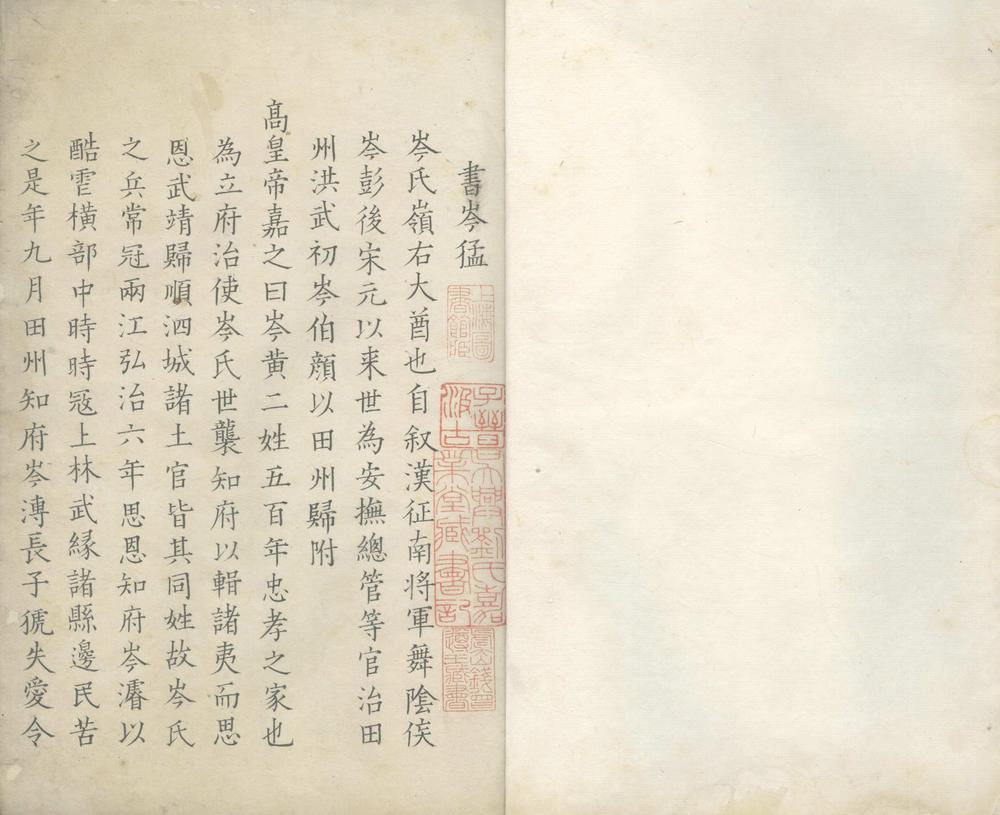 書岑猛
上海圖書館藏
子晉
汲古
吳興劉氏嘉業堂藏書記
虞山錢曾遵王藏書
岑氏嶺右大酋也自叙漢征南将軍舞陰侯
岑彭後宋元以来世為安撫總管等官治田
州洪武初岑伯顔以田州歸附
髙皇帝嘉之曰岑黄二姓五百年忠孝之家也
為立府治使岑氏世襲知府以輯諸夷而思
恩武靖歸順泗城諸土官皆其同姓故岑氏
之兵常冠兩江弘治六年思恩知府岑濬以
酷雹橫部中時時寇上林武縁諸縣邊民苦
之是年九月田州知府岑溥長子猇失愛令